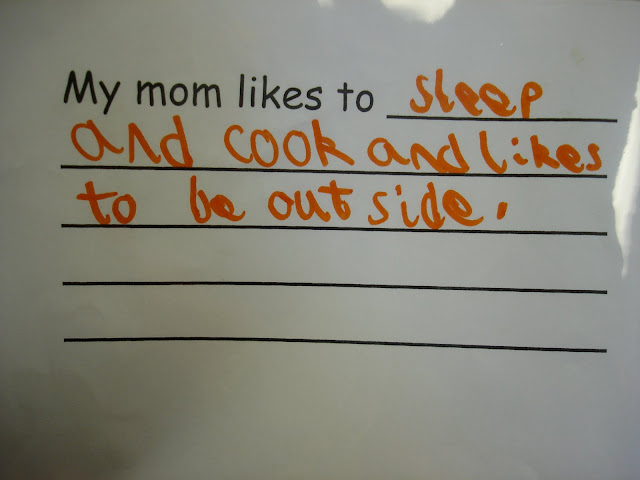 My mom likes to sleep
and cook and likes
to be outside.